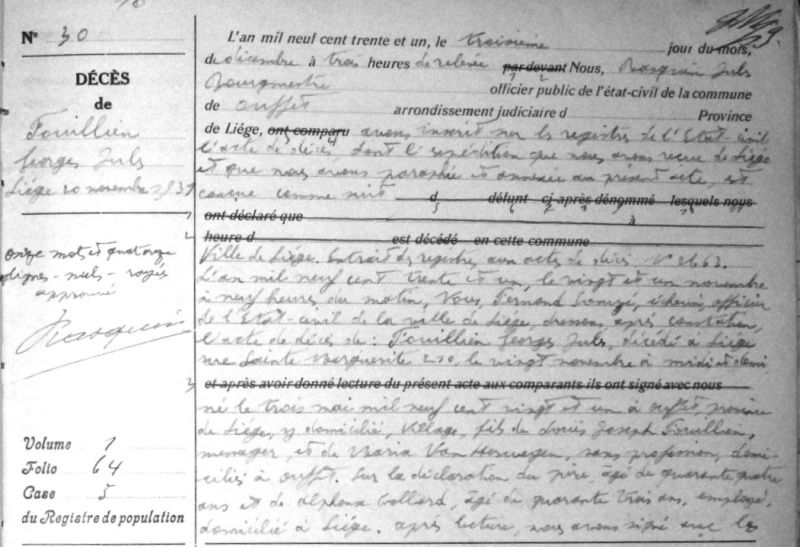 N° 30
DÉCÈS
de
Fouillien
Georges Jules
Liége 20 novembre 1931
onze mots et quatorze
lignes - nuls - rayés
approuvé
Rasquin
Volume 1
Folio 64
Case 5
du Registre de population
L'an mil neuf cent trente et un, le troisième jour du mois,
de décembre à trois heures de relevée par devant Nous, Rasquin Jules
Bourgmestre officier public de l'état-civil de la commune
de Ouffet arrondissement judiciaire d Province
de Liége, ont comparu avons inscrit sur les registres de l'Etat civil
l'acte de décès, dont l'expédition que nous avons reçue de Liége
et que nous avons paraphée et annexée au présent acte, est
conçue comme suit d défunt ci-après dénommé lesquels nous
ont déclaré que à
heure d est décédé en cette commune
Ville de Liége. Extrait des registres aux actes de décès. N° 2663.
L'an mil neuf cent trente et un, le vingt et un novembre
à neuf heures du matin, Nous, Fernand échevin, officier
de l'Etat-civil de la ville de Liége, dressons après constatation,
l'acte de décès de : Fouillien Georges Jules, décédé à Liége
rue Sainte Marguerite 270, le vingt novembre à midi et demi
et après avoir donné lecture du présent acte aux comparants ils ont signé avec nous
né le trois mai mil neuf cent vingt et un à Ouffet, province
de Liége, y domicilié, Village, fils de Louis Joseph Fouillien,
menager, et de Maria Van sans profession, domi-
ciliés à Ouffet. Sur la déclaration du père, âgé de quarante quatre
ans et de Alphonse Collard, âgé de quarante trois ans, employé,
domicilié à Liége. Après lecture, nous avons signé avec les